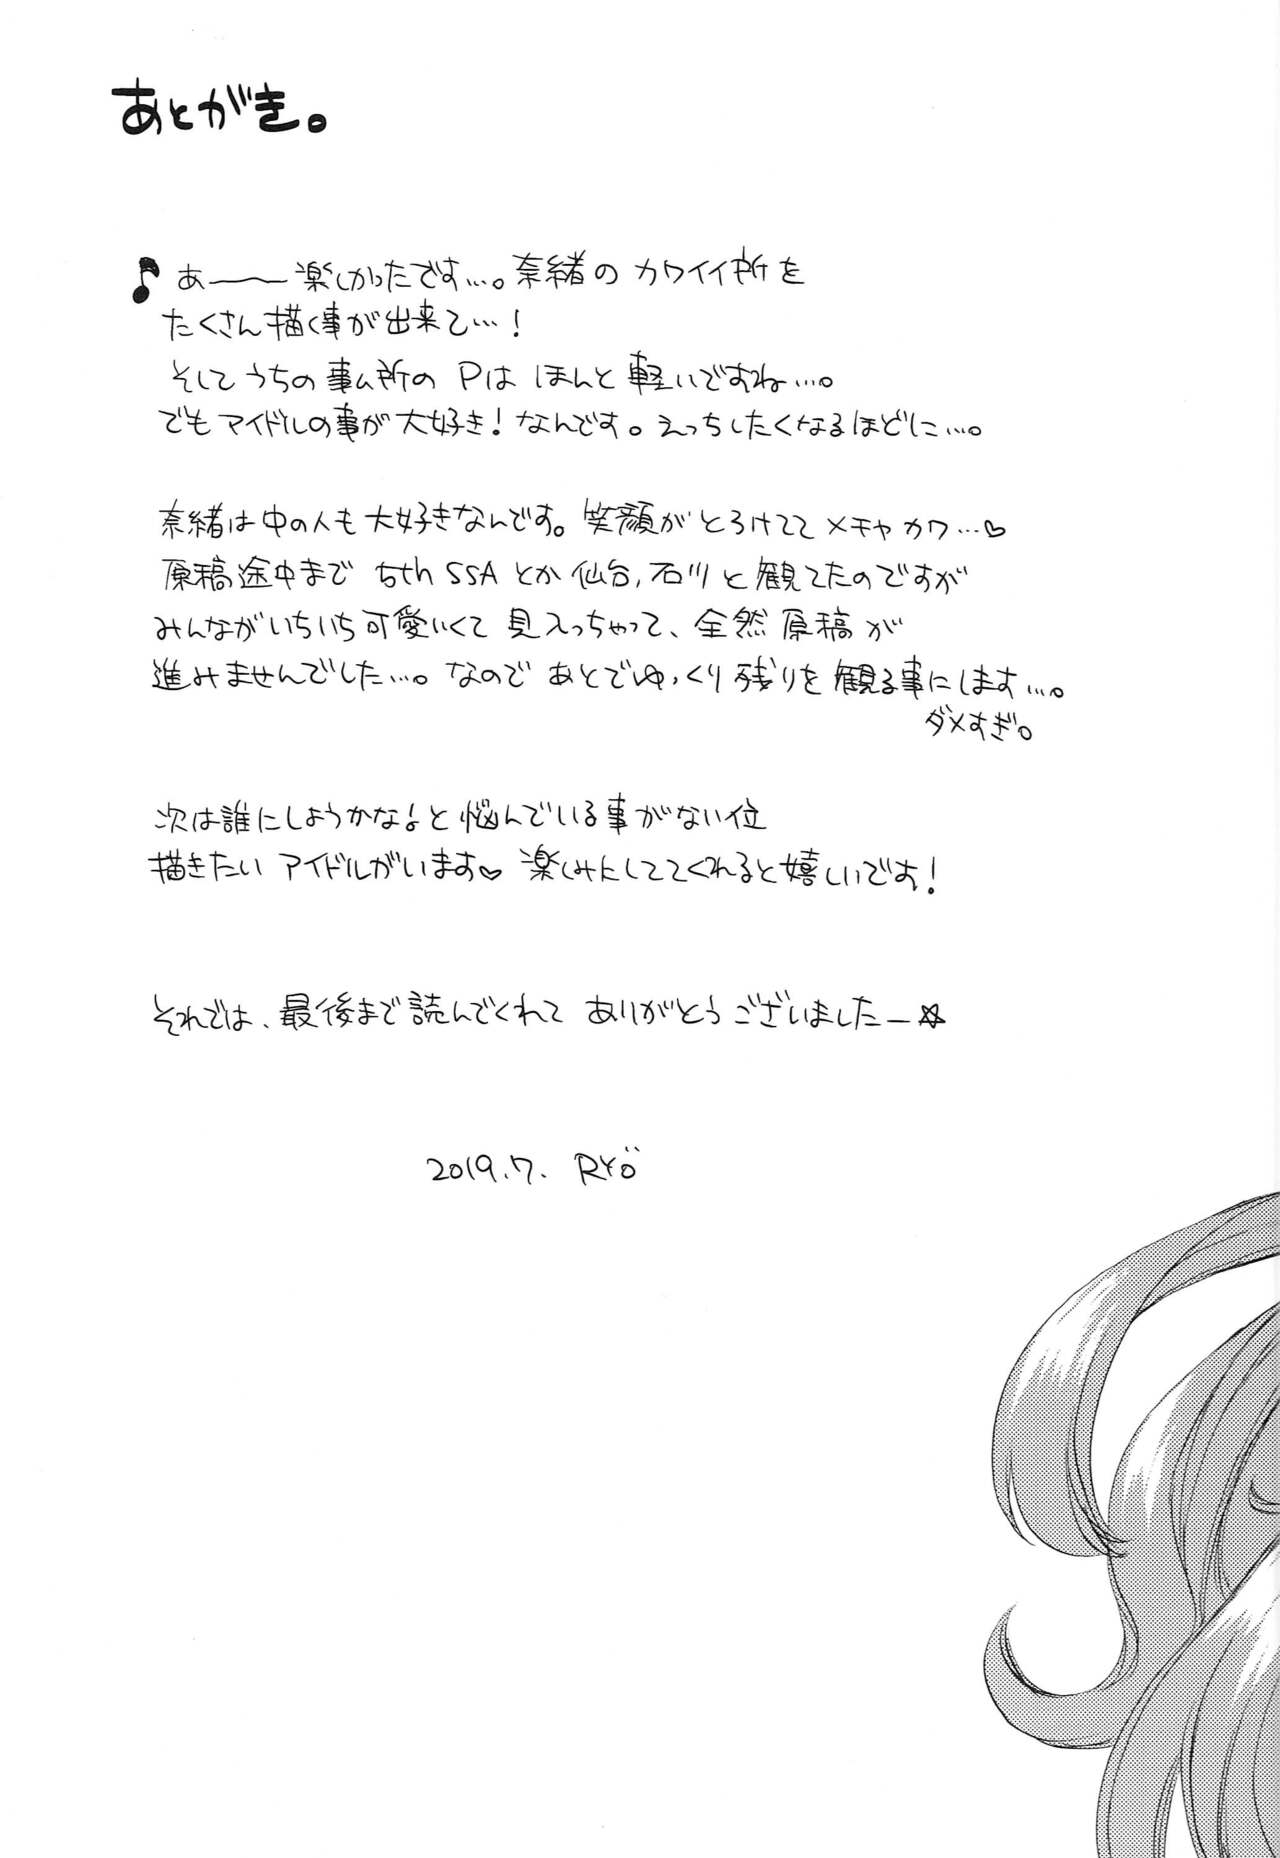 あとがき。
♪ あ――～楽しかったです…。奈緒のカワイイ所を
たくさん描く事が出来て…!
そしてうちの事ム所のPはほんと軽いですね…。
でもアイドルの事が大好き!なんです。えっちしたくなるほどに…。
奈緒は中の人も大好きなんです。笑顔がとろけててメチャカワ…♡
原稿途中まで 5th SSAとか仙台,石川と観てたのですが
みんながいちいち可愛いくて見えっちゃって、全然原稿が
進みませんでした…。なのであとでゆっくり残りを観る事にします…。
ダメすぎ。
次は誰にしようかな♪と悩んでいる事がない位
描きたいアイドルがいます♡ 楽しみにしててくれると嬉しいです!
それでは、最後まで読んでくれてありがとうございましたー☆
2019.7. RYÖ